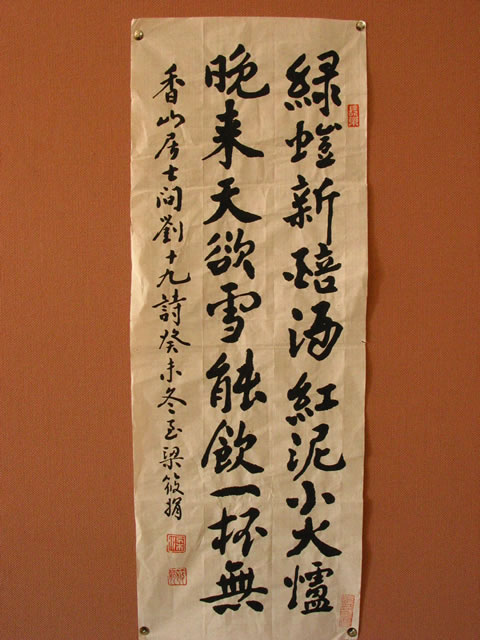 緑螘新醅酒紅泥小火爐
晚来天欲雪能飲一杯無
香山居士問劉十九詩癸未冬至梁筱娟